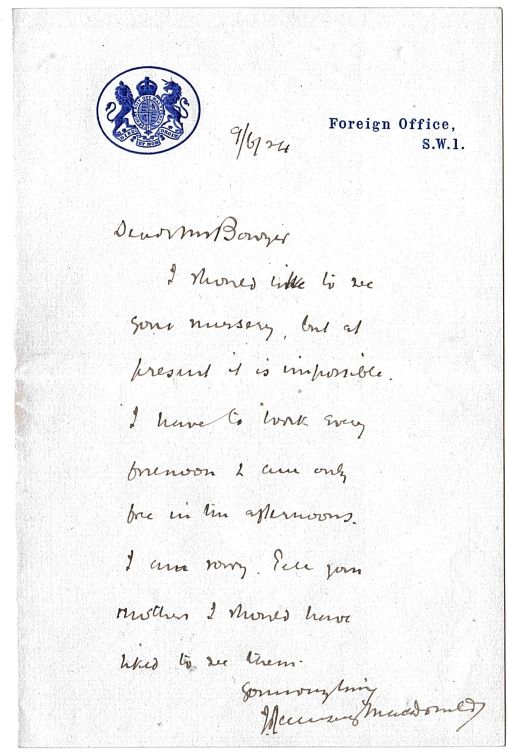 Foreign Office,
S.W.1.
9/6/24
Dear Mrs Bowyer
I should like to see
your nursery, but at
present it is impossible.
I have to work every
forenoon & am only
free in the afternoons.
I am sorry. Tell your
mothers I should have
liked to see them.
Yours very truly
J Ramsay Macdonald